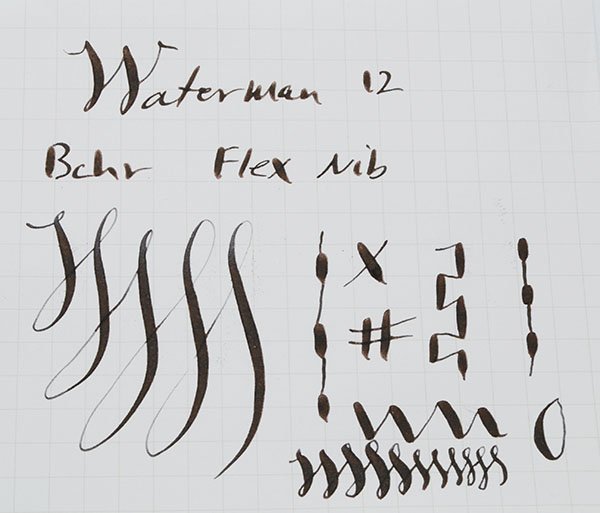 Waterman 12
Bchr Flex Nib